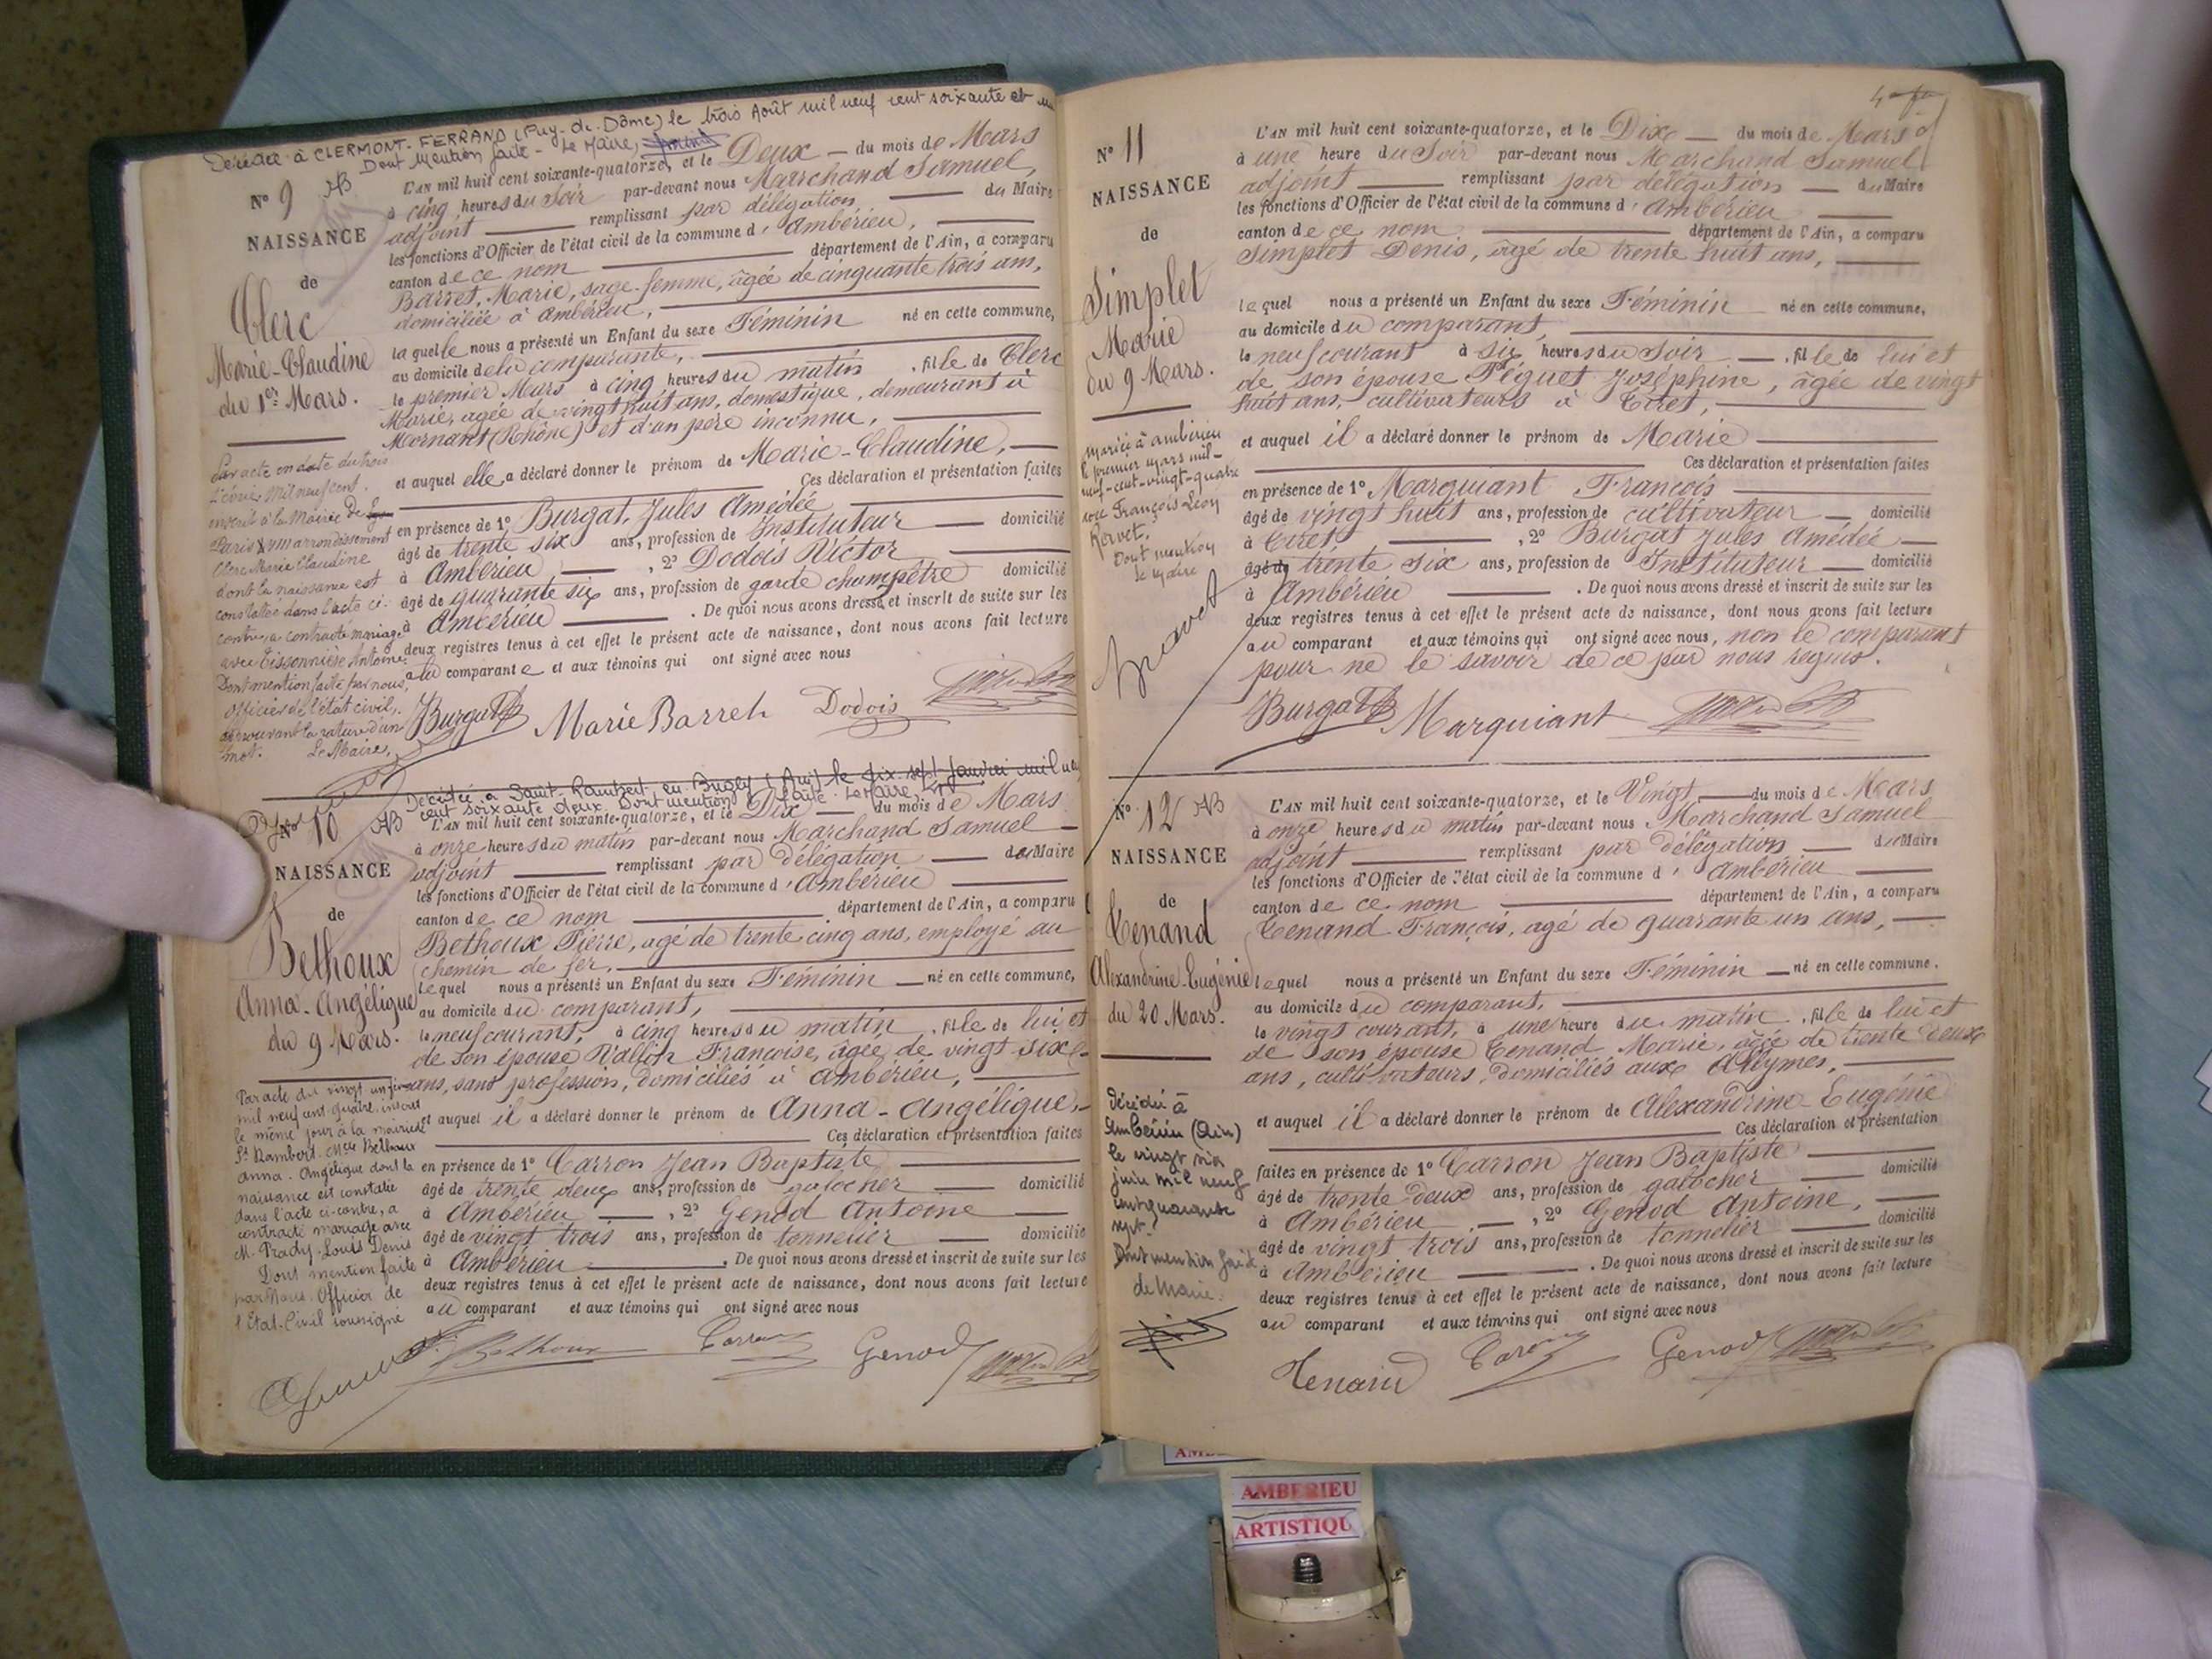 Décédée à CLERMONT-FERRAND (Puy-de-Dôme) le trois Août mil neuf cent soixante et un
Dont Mention faite - Le Maire,
N° 9
NAISSANCE
de
Clerc
Marie-Claudine
du 1er Mars.
L'AN mil huit cent soixante-quatorze, et le Deux — du mois de Mars
à cinq heures du soir par-devant nous Marchand Samuel,
adjoint remplissant par délégation du Maire
les fonctions d'Officier de l'état civil de la commune d'Ambérieu,
canton de ce nom département de l'Ain, a comparu
Barret, Marie, sage-femme, âgée de cinquante trois ans,
domiciliée à Ambérieu,
laquelle nous a présenté un Enfant du sexe Féminin né en cette commune,
au domicile de la comparante,
le premier Mars à cinq heures du matin, fille de Clerc
Marie, agée de vingt huit ans, domestique, demeurant à
Mornant (Rhône) et d'un père inconnu,
et auquel elle a déclaré donner le prénom de Marie-Claudine,
Ces déclaration et présentation faites
en présence de 1° Burgat, Jules Amédée
âgé de trente six ans, profession de Instituteur domicilié
à Ambérieu, 2° Dodois Victor
âgé de quarante six ans, profession de garde champêtre domicilié
à Ambérieu. De quoi nous avons dressé et inscrit de suite sur les
deux registres tenus à cet effet le présent acte de naissance, dont nous avons fait lecture
a la comparante et aux témoins qui ont signé avec nous
Par acte en date du trois
mil neuf cent
inscrit à la Mairie de
Paris arrondissement
Clerc Marie Claudine
dont la naissance est
constatée dans l'acte ci-
contre, a contracté mariage
avec Tissonnière Antoine
Dont mention faite par nous,
officier de l'état civil,
approuvant la rature d'un
mot. Le Maire,
Burgat Marie Barret Dodois
Décédée à Saint-Rambert en Bugey (Ain) le dix-sept janvier mil neuf
cent soixante deux. Dont mention faite. Le Maire,
N° 10
NAISSANCE
de
Bethoux
Anna-Angélique
du 9 Mars.
L'AN mil huit cent soixante-quatorze, et le Dix — du mois de Mars
à onze heures du matin par-devant nous Marchand Samuel
adjoint remplissant par délégation du Maire
les fonctions d'Officier de l'état civil de la commune d'Ambérieu
canton de ce nom département de l'Ain, a comparu
Bethoux Pierre, agé de trente cinq ans, employé au
chemin de fer,
lequel nous a présenté un Enfant du sexe Féminin né en cette commune,
au domicile du comparant,
le neuf courant, à cinq heures du matin, fille de lui et
de son épouse Vallin Françoise, âgée de vingt six
ans, sans profession, domiciliés à Ambérieu,
et auquel il a déclaré donner le prénom de Anna-Angélique,
Ces déclaration et présentation faites
en présence de 1° Carron Jean Baptiste
âgé de trente deux ans, profession de galocher domicilié
à Ambérieu, 2° Genod Antoine
âgé de vingt trois ans, profession de tonnelier domicilié
à Ambérieu. De quoi nous avons dressé et inscrit de suite sur les
deux registres tenus à cet effet le présent acte de naissance, dont nous avons fait lecture
au comparant et aux témoins qui ont signé avec nous
Par acte du vingt un
mil neuf cent quatre, inscrit
le même jour à la mairie de
St Rambert. Mlle Bethoux
Anna-Angélique dont la
naissance est constatée
dans l'acte ci-contre, a
contracté mariage avec
M. Prady Louis Denis
Dont mention faite
par Nous Officier de
l'Etat-Civil soussigné
Bethoux Carron Genod
N° 11
NAISSANCE
de
Simplet
Marie
du 9 Mars.
L'AN mil huit cent soixante-quatorze, et le Dix — du mois de Mars
à une heure du Soir par-devant nous Marchand Samuel
adjoint remplissant par délégation du Maire
les fonctions d'Officier de l'état civil de la commune d'Ambérieu
canton de ce nom département de l'Ain, a comparu
Simplet Denis, âgé de trente huit ans,
lequel nous a présenté un Enfant du sexe Féminin né en cette commune,
au domicile du comparant,
le neuf courant à six heures du Soir, fille de lui et
de son épouse Péguet Joséphine, âgée de vingt
huit ans, cultivateurs à Tiret,
et auquel il a déclaré donner le prénom de Marie
Ces déclaration et présentation faites
en présence de 1° Marquiant François
âgé de vingt huit ans, profession de cultivateur domicilié
à Tiret, 2° Burgat Jules Amédée
âgé de trente six ans, profession de Instituteur domicilié
à Ambérieu. De quoi nous avons dressé et inscrit de suite sur les
deux registres tenus à cet effet le présent acte de naissance, dont nous avons fait lecture
au comparant et aux témoins qui ont signé avec nous, non le comparant
pour ne le savoir de ce par nous requis.
Mariée à Ambérieu
le premier mars mil-
neuf-cent-vingt-quatre
avec François Léon
Kervet.
Dont mention
Le Maire
Burgat Marquiant
N° 12
NAISSANCE
de
Tenand
Alexandrine-Eugénie
du 20 Mars.
L'AN mil huit cent soixante-quatorze, et le Vingt, du mois de Mars
à onze heures du matin par-devant nous Marchand Samuel
adjoint remplissant par délégation du Maire
les fonctions d'Officier de l'état civil de la commune d'Ambérieu
canton de ce nom département de l'Ain, a comparu
Tenand François, agé de quarante un ans,
lequel nous a présenté un Enfant du sexe Féminin né en cette commune.
au domicile du comparant,
le vingt courant, à une heure du matin, fille de lui et
de son épouse Tenand Marie, agée de trente deux
ans, cultivateurs, domiciliés aux Allymes,
et auquel il a déclaré donner le prénom de Alexandrine-Eugénie
Ces déclaration et présentation
faites en présence de 1° Carron Jean Baptiste
âgé de trente deux ans, profession de galocher domicilié
à Ambérieu, 2° Genod Antoine,
âgé de vingt trois ans, profession de tonnelier domicilié
à Ambérieu. De quoi nous avons dressé et inscrit de suite sur les
deux registres tenus à cet effet le présent acte de naissance, dont nous avons fait lecture
au comparant et aux témoins qui ont signé avec nous
Décédée à
Ambérieu (Ain)
le vingt six
juin mil neuf
cent quarante
sept.
Dont mention faite
le Maire.
Tenand Carron Genod
AMBERIEU
ARTISTIQU